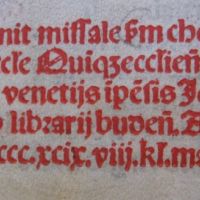 nit missale ẜm cho
cẜie Quiqzecclien̄
venetijs ip̄esis Jo
librarij buden̄. A
ccc.xcix.viij.kl.ms